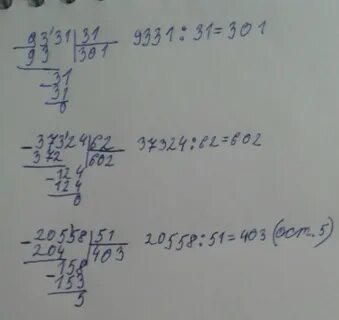 9331 | 31 9331:31=301
93 | 301
-31
31
0
-37324 | 62 37324:62=602
372 | 602
-124
124
0
-20558 | 51 20558:51=403 (ост.5)
204 | 403
-158
153
5